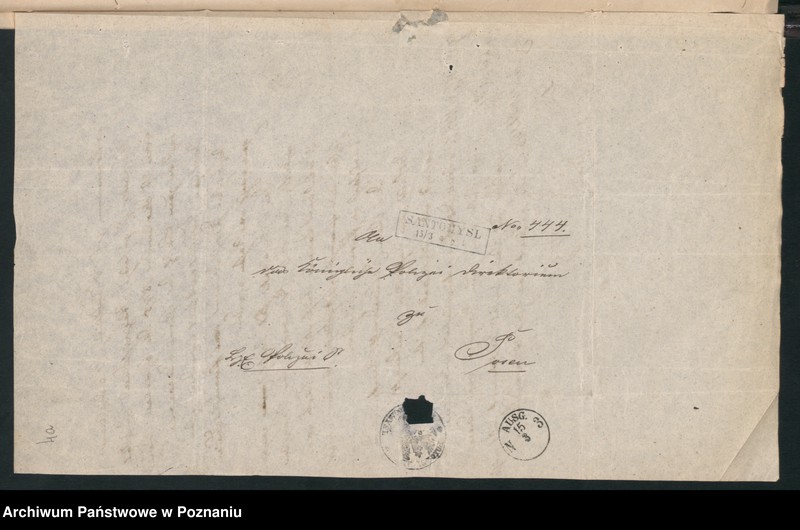 No. 444.
SANTOMYSL
15/3
An
das Königliche Polizei Direktorium
zu
Posen
Polizei S.
AUSG.
15
3
N 3
4a
Archiwum Państwowe w Poznaniu